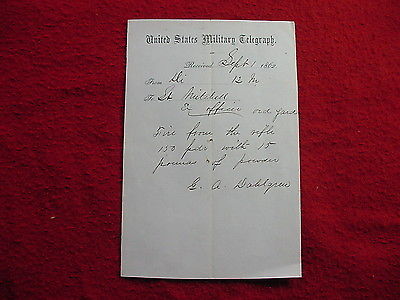 United States Military Telegraph.
Received, Sept 1 186
From Di 12 M
To Lt Mitchell
& officer ord yard
Fire from the rifle
150 pdr with 15
pounds of powder
A. Dahlgren